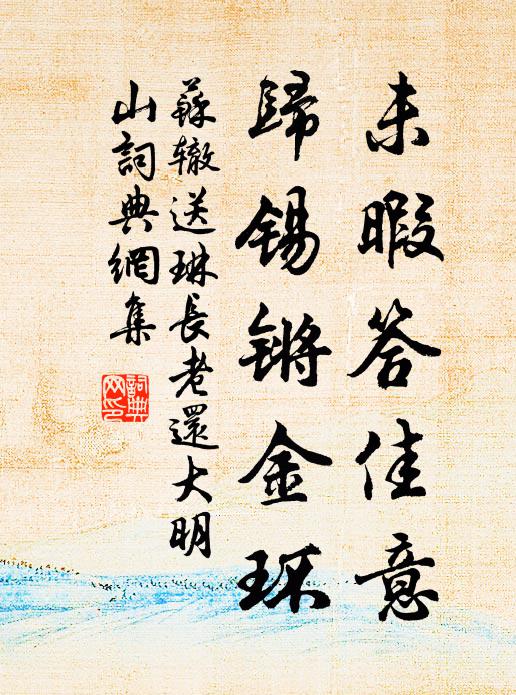 未暇答佳意
歸锡锵金环
蘇辙送琳長老還大明
山詞典網集
詞典
网印